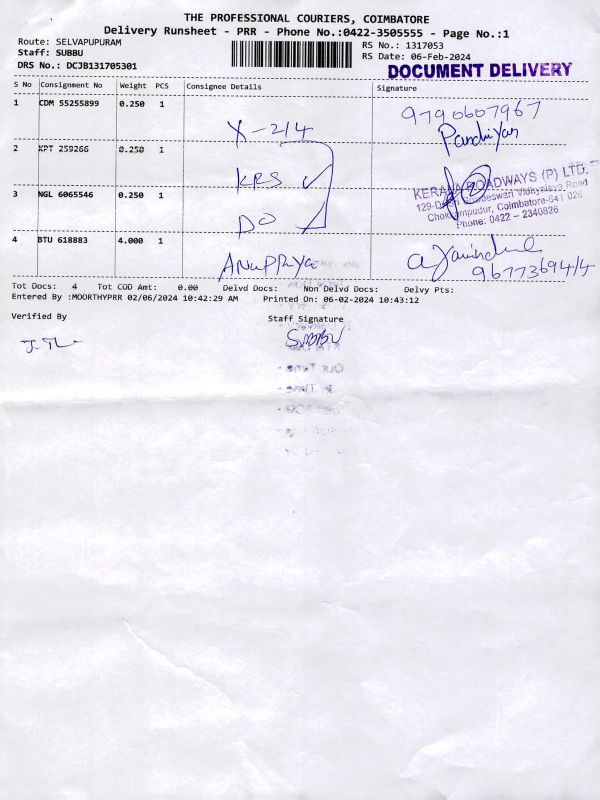 THE PROFESSIONAL COURIERS, COIMBATORE
Delivery Runsheet - PRR - Phone No.:0422-3505555 - Page No.:1
Route: SELVAPUPURAM
Staff: SUBBU
DRS No.: DCJB131705301
RS No.: 1317053
RS Date: 06-Feb-2024
DOCUMENT DELIVERY
S No Consignment No Weight PCS Consignee Details Signature
1 CDM 55255899 0.250 1
X-214
9790607967
Pandiyan
2 KPT 259266 0.250 1
KRS
KERALA ROADWAYS (P) LTD.
Vidhyalaya Road
Coimbatore-641 026
Phone: 0422 - 2340826
3 NGL 6065546 0.250 1
DO
4 BTU 618883 4.000 1
ANUPRIYA
9677369414
Tot Docs: 4 Tot COD Amt: 0.00 Delvd Docs: Non Delvd Docs: Delvy Pts:
Entered By :MOORTHYPRR 02/06/2024 10:42:29 AM Printed On: 06-02-2024 10:43:12
Verified By Staff Signature
SUBBU